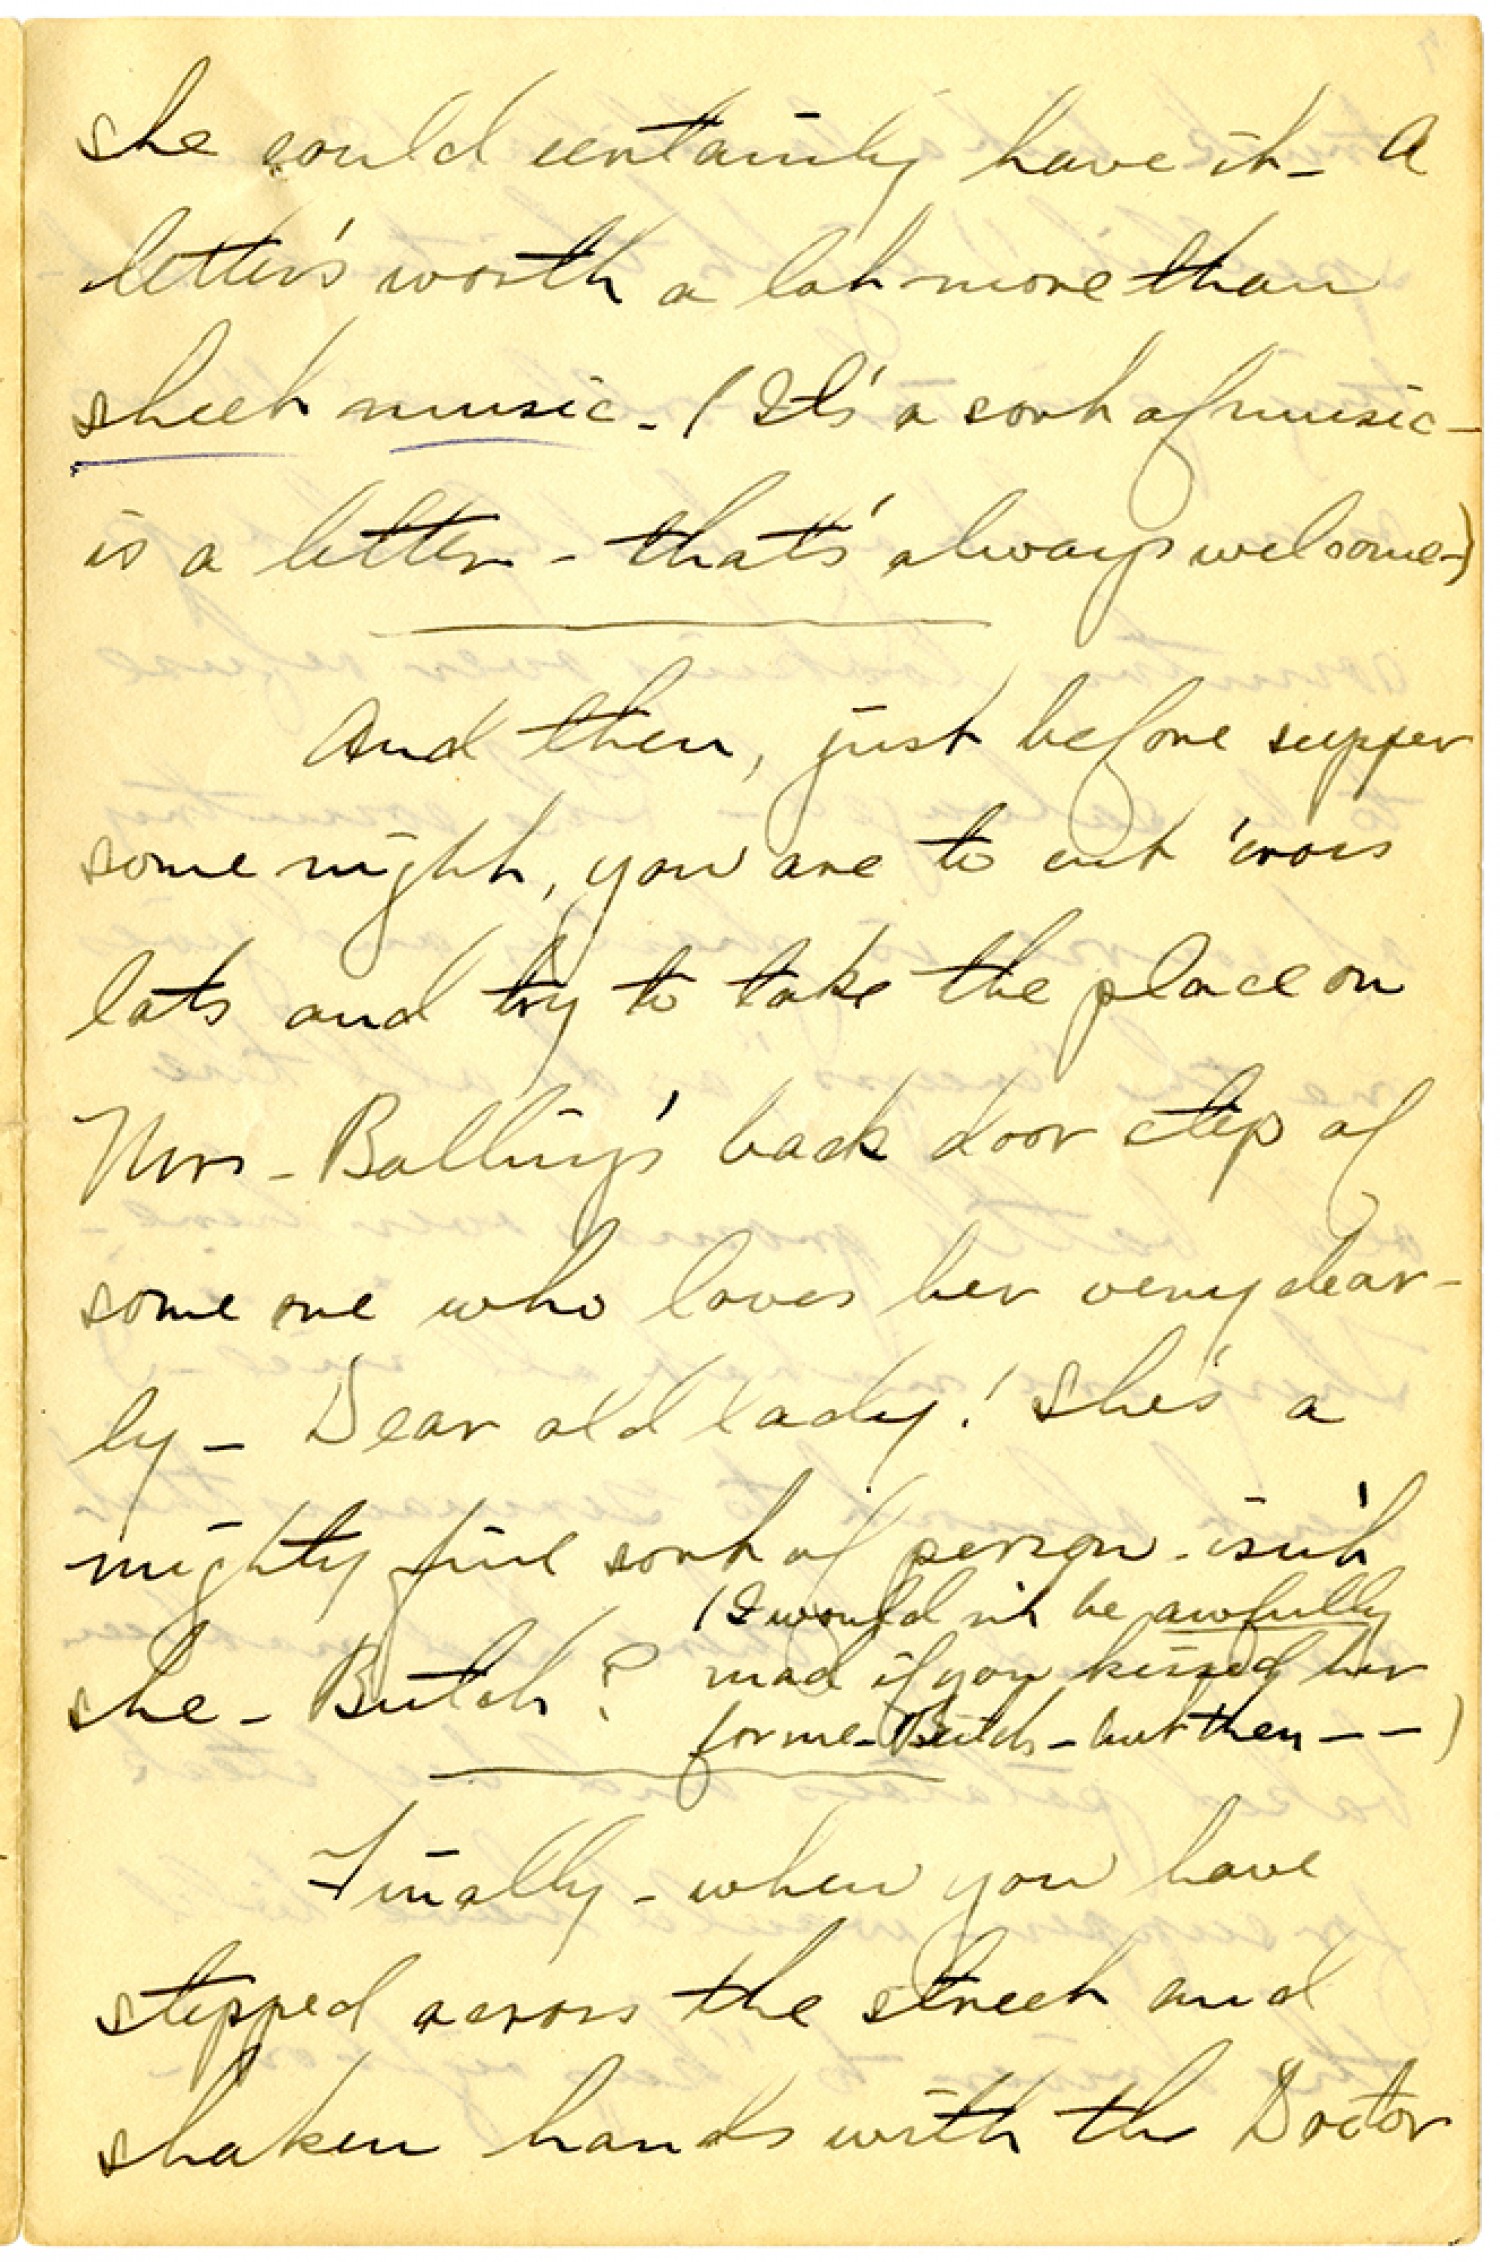 she could certainly have it - A
letter's worth a lot more than
sheet music - (It's a sort of music -
is a letter - that's always welcome -)
And then, just before supper
some night, you are to cut 'cross
lots and try to take the place on
Mrs - Bolling's back door step of
some one who loves her very dear-
ly - Dear old lady! She's a
mighty fine sort of person - isn't
she - Butch?
(I would n't be awfully
mad if you kissed her
for me - Butch - but then - - )
Finally - when you have
stepped across the street and
shaken hands with the Doctor